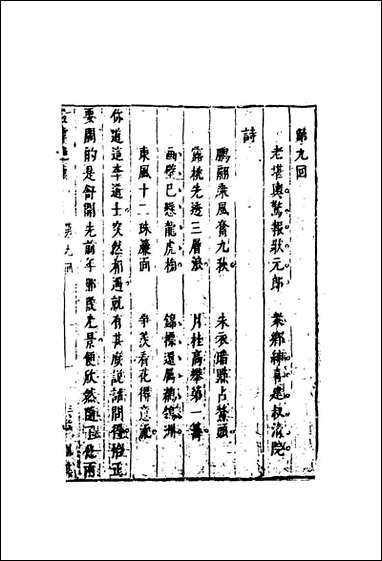 第九回
老堪輿驚報狀元郎　衆鄉紳喜建叔清院
詩
鵬翮乘風奮九秋　朱衣暗點占鰲頭
露桃先透三層浪　月桂高攀第一籌
畫壁已懸龍虎榜　錦標還屬鸚鵡洲
東風十二珠簾面　爭羨看花得意流
你道這李道士突然相遇就有甚麼說話問得恰正
要問的是舒開先前年那段光景便欣然隨了他兩
第九回